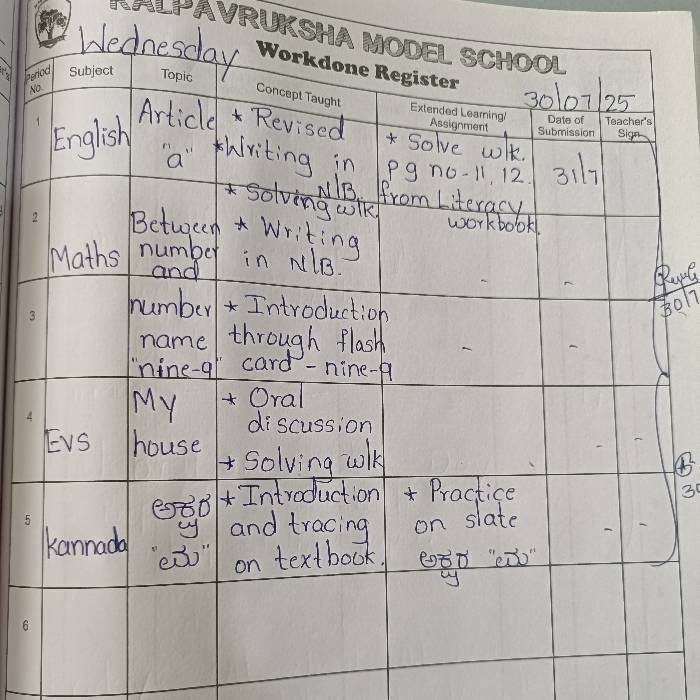 KALPAVRUKSHA MODEL SCHOOL
Wednesday
Workdone Register
30/07/25
Period No.
Subject
Topic
Concept Taught
Extended Learning/ Assignment
Date of Submission
Teacher's Sign
1
English
Article
"a"
* Revised
* Writing in
N/B.
* Solving w/k.
* Solve w/k.
pg no-11, 12.
from Literacy
workbook.
31/7
2
Maths
Between
number
and
* Writing
in N/B.
-
-
30/7
3
number
name
"nine-9"
* Introduction
through flash
card - nine-9
-
-
4
EVS
My
house
* Oral
discussion
* Solving w/k
-
-
5
Kannada
ಅಕ್ಷರ
* Introduction
and tracing
on textbook.
* Practice
on slate
ಅಕ್ಷರ
-
-
6